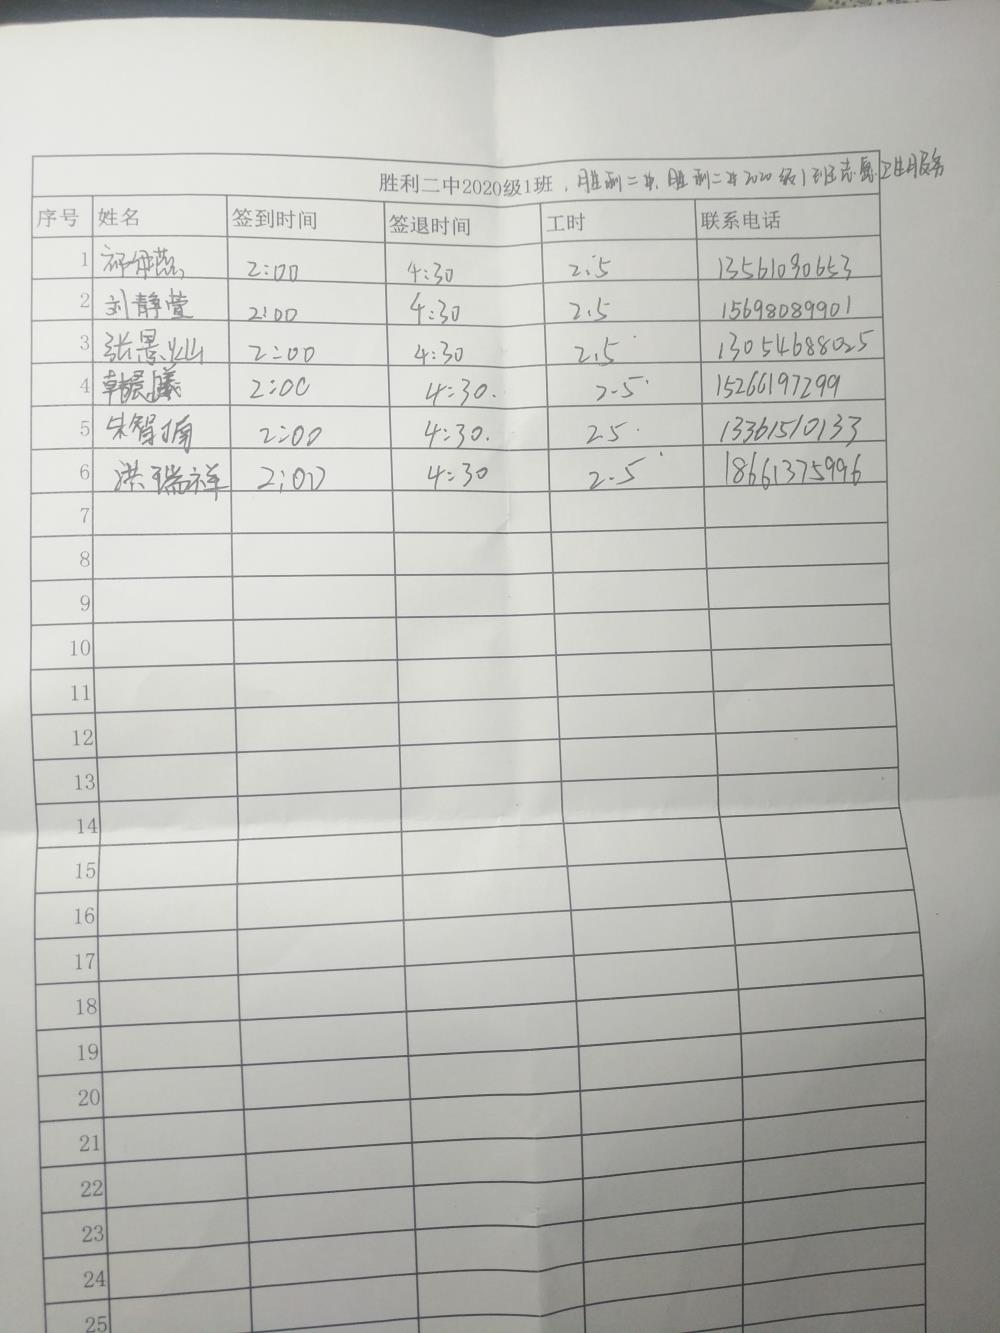 胜利二中2020级1班，胜利二中，胜利二中2020级1班志愿卫生服务
序号 姓名 签到时间 签退时间 工时 联系电话
1 祁伊蕊 2:00 4:30 2.5 13561090653
2 刘静萱 2:00 4:30 2.5 15698089901
3 张景灿 2:00 4:30 2.5 13054688025
4 韩晨曦 2:00 4:30. 2.5 15266197299
5 朱智 2:00 4:30. 2.5 13361510133
6 洪瑞祥 2:00 4:30 2.5 18661375996
7
8
9
10
11
12
13
14
15
16
17
18
19
20
21
22
23
24
25